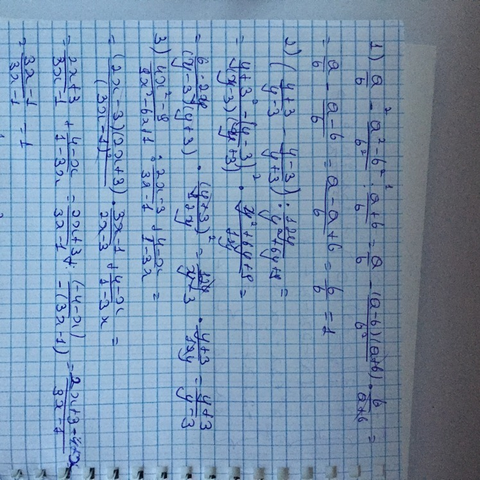 1) a/b - (a²-b²)/b² : (a+b)/b = a/b - ((a-b)(a+b))/b² · b/(a+b) =
= a/b - (a-b)/b = (a-a+b)/b = b/b = 1
2) ((y+3)/(y-3) - (y-3)/(y+3)) : 12y/(y²+6y+9) =
= ((y+3)²-(y-3)²)/((y-3)(y+3)) · (y²+6y+9)/12y =
= 6·2y/((y-3)(y+3)) · (y+3)²/12y = 12y/(y-3) · (y+3)/12y = (y+3)/(y-3)
3) (4x²-9)/(9x²-6x+1) : (2x-3)/(3x-1) + (4-x)/(1-3x) =
= ((2x-3)(2x+3))/(3x-1)² · (3x-1)/(2x-3) + (4-x)/(1-3x) =
= (2x+3)/(3x-1) + (4-x)/(1-3x) = (2x+3)/(3x-1) + (4-x)/(-(3x-1)) = (2x+3-4+x)/(3x-1)
= (3x-1)/(3x-1) = 1